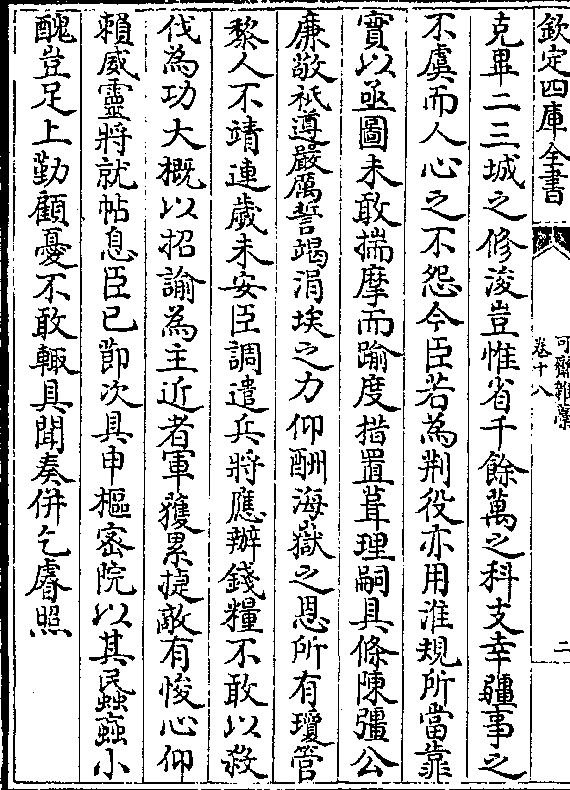 欽定四庫全書
可齋雜藁
卷十八
二
克畢二三城之修浚豈惟省千餘萬之科支幸疆事之
不虞而人心之不怨今臣若為荆役亦用淮規所當靠
實以亟圖未敢揣摩而踰度措置葺理嗣具條陳彊公
廉敬祇遵嚴厲誓竭涓埃之力仰酬海嶽之恩所有瓊管
黎人不靖連歲未安臣調遣兵將應辦錢糧不敢以殺
伐為功大概以招諭為主近者軍獲累捷敵有悛心仰
賴威靈將就帖息臣已節次具申樞宻院以其蝨小
醜豈足上勤顧憂不敢輙具聞奏併乞睿照